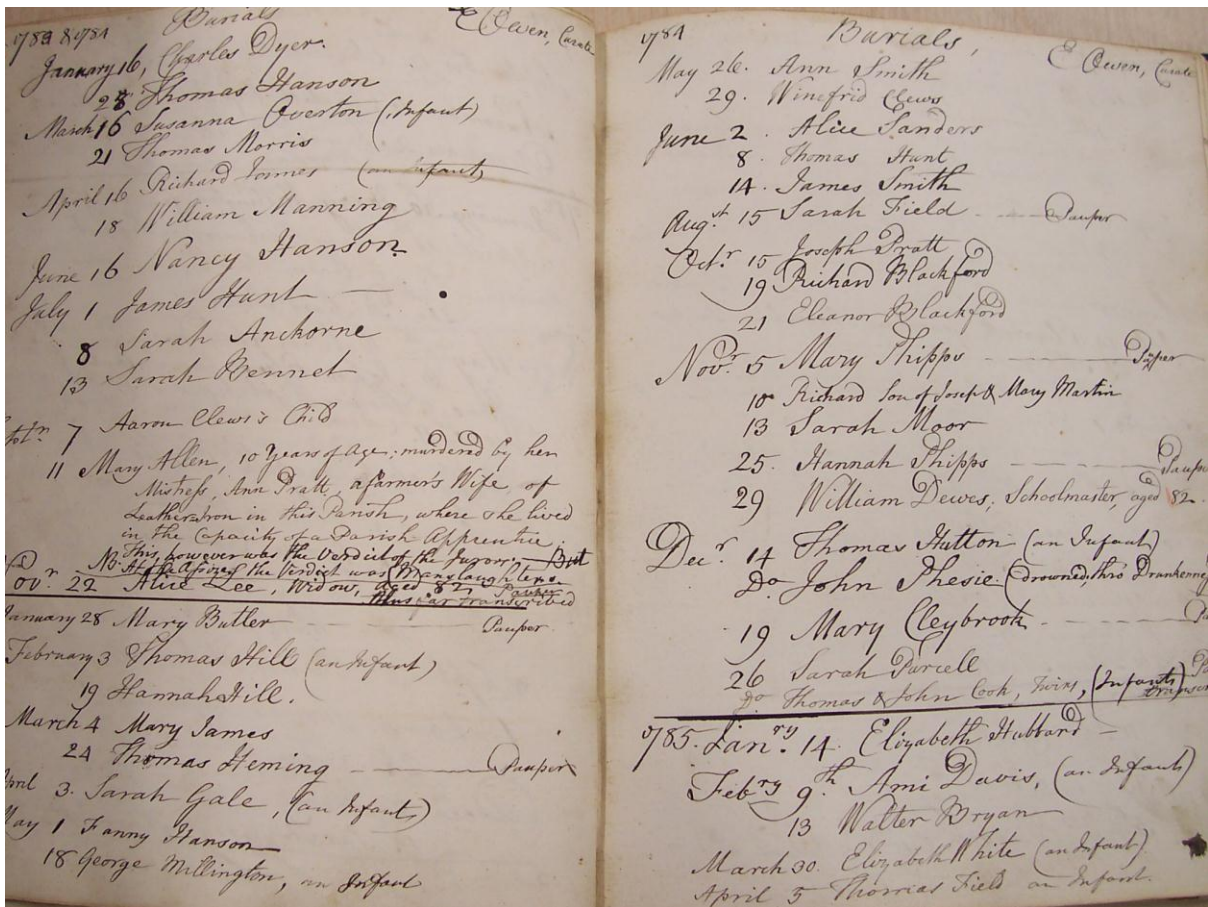 1783 & 1784 Burials E Owen, Curate
January 16, Charles Dyer.
28 Thomas Hanson
March 16 Susanna Overton (Infant)
21 Thomas Morris
April 16 Richard (an Infant)
18 William Manning
June 16 Nancy Hanson.
July 1 James Hunt
8 Sarah Anckorne
13 Sarah Bennet
7 Aaron Clews's Child
11 Mary Allen, 10 Years of Age; murdered by her
Mistress, Ann Pratt, a farmer's Wife, of
in this Parish, where she lived
in the Capacity of a Parish Apprentice;
This, however was the Verdict of the Jurors, But
the Verdict was Manslaughter.
Novr. 22 Alice Lee, Widow, Aged 82 Pauper
thus far transcribed
January 28 Mary Butler Pauper
February 3 Thomas Hill (an Infant)
19 Hannah Hill.
March 4 Mary James
24 Thomas Heming Pauper
April 3. Sarah Gale, (an Infant)
May 1 Fanny Hanson
18 George Millington, an Infant
1784 Burials, E Owen, Curate
May 26. Ann Smith
29. Winefrid Clews
June 2. Alice Sanders
8. Thomas Hunt
14. James Smith
Augst 15 Sarah Field Pauper
Octr. 15 Joseph Pratt
19 Richard Blackford
21 Eleanor Blackford
Novr. 5 Mary Phipps
10 Richard Son of Joseph & Mary Martin
13 Sarah Moor
25. Hannah Phipps Pauper
29 William Dewes, Schoolmaster, aged 82.
Decr. 14 Thomas Hutton (an Infant)
Do John Thesie (Drowned, thro' Drunkenness
19 Mary Cleybrook
26 Sarah Purcell
Do Thomas & John Cook, twins, (Infants)
1785. Janry. 14. Elizabeth Hubbard
Febry 9th. Ami Davis, (an Infant)
13 Walter Bryan
March 30. Elizabeth White (an Infant)
April 5 Thomas Field an Infant.